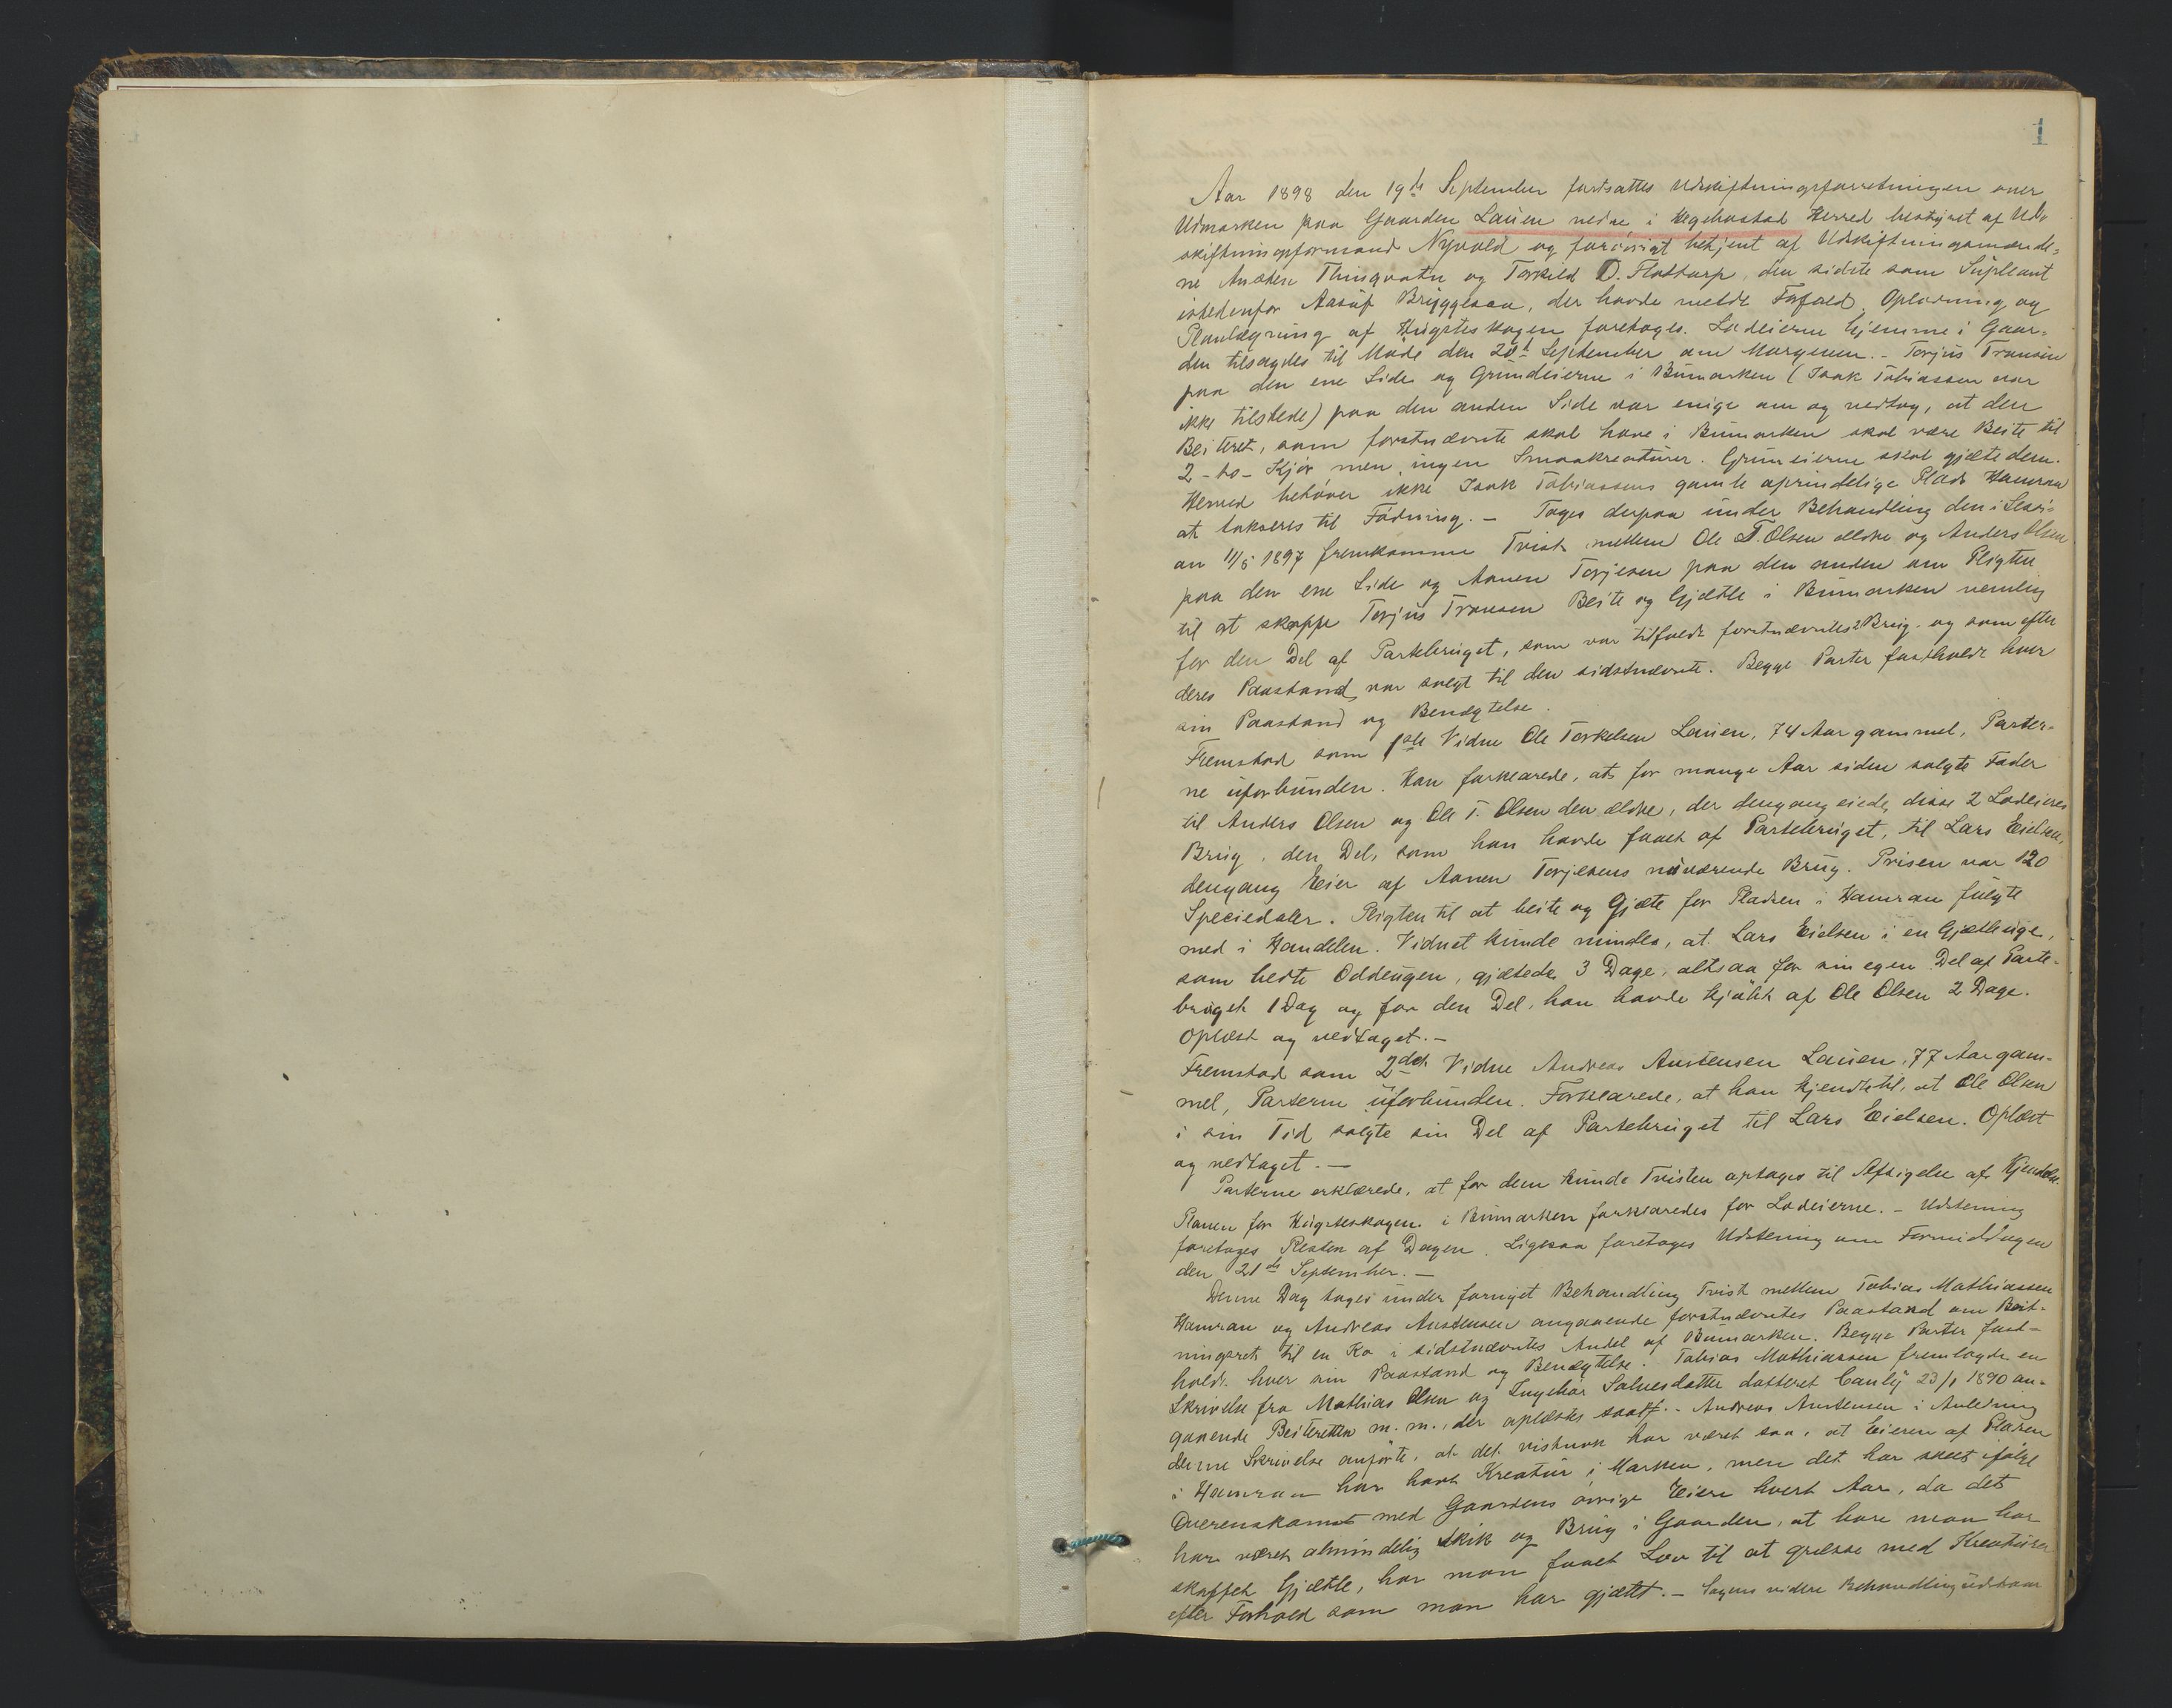 1
Aar 1898 den 19de September fortsattes Udskiftningsforretningen over
Udmarken paa Gaarden Lauen nedre i Hegebostad Herred bestyret af Ud-
skiftningsformand Nyvold og forövrigt betjent af Udskiftningsmænde-
ne Ansten Thingvatn og Torkild D. Flottorp, den sidste som Supleant
istedenfor Aasuf Bryggesaa, der havde meldt Forfald. Oplodning og
Planlægning af Hugsteskogen foretoges. Lodeierne hjemme i Gaar-
den tilsagdes til Möde den 20de September om Morgenen. - Torjus Tronsen
paa den ene Side og Grundeierne i Bumarken (Isak Tobiassen var
ikke tilstede) paa den anden Side var enige om og vedtog, at den
Beiteret, som förstnævnte skal have i Bumarken skal være Beite til
2 - to - Kjör men ingen Smaakreaturer. Gruneierne skal gjæte dem.
Herved behöver ikke Isak Tobiassens gamle oprindelige Plads Hamran
at takseres til Födning. - Toges derpaa under Behandling den i Sessi-
on 11/5 1897 fremkomne Tvist mellem Ole T. Olsen ældre og Anders Olsen
paa den ene Side og Aanen Torjesen paa den anden om Pligten
til at skaffe Torjus Tronsen Beite og Gjætle i Bumarken nemlig
for den Del af Partebruget, som var tilfaldt förstnævntes 2 Brug og som efter
deres Paastand var solgt til den sidstnævnte. Begge Parter fastholdt hver
sin Paastand og Benægtelse.
Fremstod som 1ste Vidne Ole Torkelsen Lauen, 74 Aar gammel, Parter-
ne uforbunden. Han forklarede, at for mange Aar siden solgte Fader
til Anders Olsen og Ole T. Olsen den ældre, der dengang eiede disse 2 Lodeieres
Brug, den Del, som han havde faaet af Partebruget, til Lars Eielsen,
dengang Eier af Aanen Torjesens nuværende Brug. Prisen var 120
Speciedaler. Pligten til at beite og Gjæte for Pladsen i Hamran fulgte
med i Handelen. Vidnet kunde mindes, at Lars Eielsen i en Gjætleuge,
som hedte Oddeugen, gjætede 3 Dage, altsaa for sin egen Del af Parte-
bruget 1 Dag og for den Del, han havde kjöbt af Ole Olsen 2 Dage.
Oplæst og vedtaget. -
Fremstod som 2det Vidne Andreas Austensen Lauen, 77 Aar gam-
mel, Parterne uforbunden. Forklarede, at han kjendte til, at Ole Olsen
i sin Tid solgte sin Del af Partebruget til Lars Eielsen. Oplæst
og vedtaget. -
Parterne erklærede, at for dem kunde Tvisten optages til Afsigelse af Kjendelse.
Planen for Hugsteskogen i Bumarken forklaredes for Lodeierne. - Udstening
foretoges Resten af Dagen. Ligesaa foretoges Udstening om Formiddagen
den 21de September. -
Denne Dag toges under fornyet Behandling Tvist mellem Tobias Mathiassen
Hamran og Andreas Austensen angaaende förstnævntes Paastand om Beit-
ningsret til en Ko i sidstnævntes Andel af Bumarken. Begge Parter fast-
holdt hver sin Paastand og Benægtelse. Tobias Mathiassen fremlagde en
Skrivelse fra Mathias Olsen og Ingebör Salvesdatter datteret 23/1 1890 an-
gaaende Beiteretten m. m., der oplæstes saalt. - Andreas Austensen i Anledning
denne Skrivelse anförte, at det vistnok har været saa, at Eieren af Pladsen
i Hamran har havt Kreatur i Marken, men det har skeet ifölge
Overenskomst med Gaardens övrige Eiere hvert Aar, da det
har været almindelig Skik og Brug i Gaarden, at bare man har
skaffet Gjætle, har man faaet Lov til at græsse med Kreaturer
efter Forhold som man har gjætet. - Sagens videre Behandling udstaar